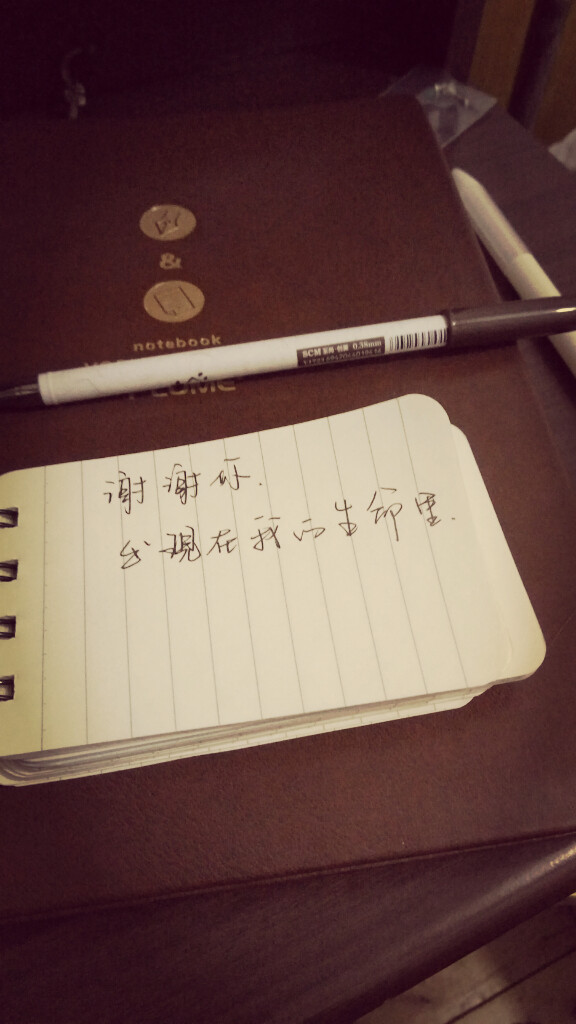 &
notebook
0.38mm
谢谢你.
出现在我的生命里.